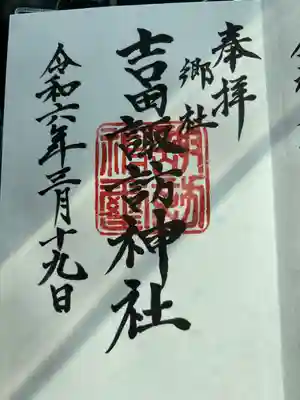 奉拝
郷社
吉田諏訪神社
令和六年三月十九日